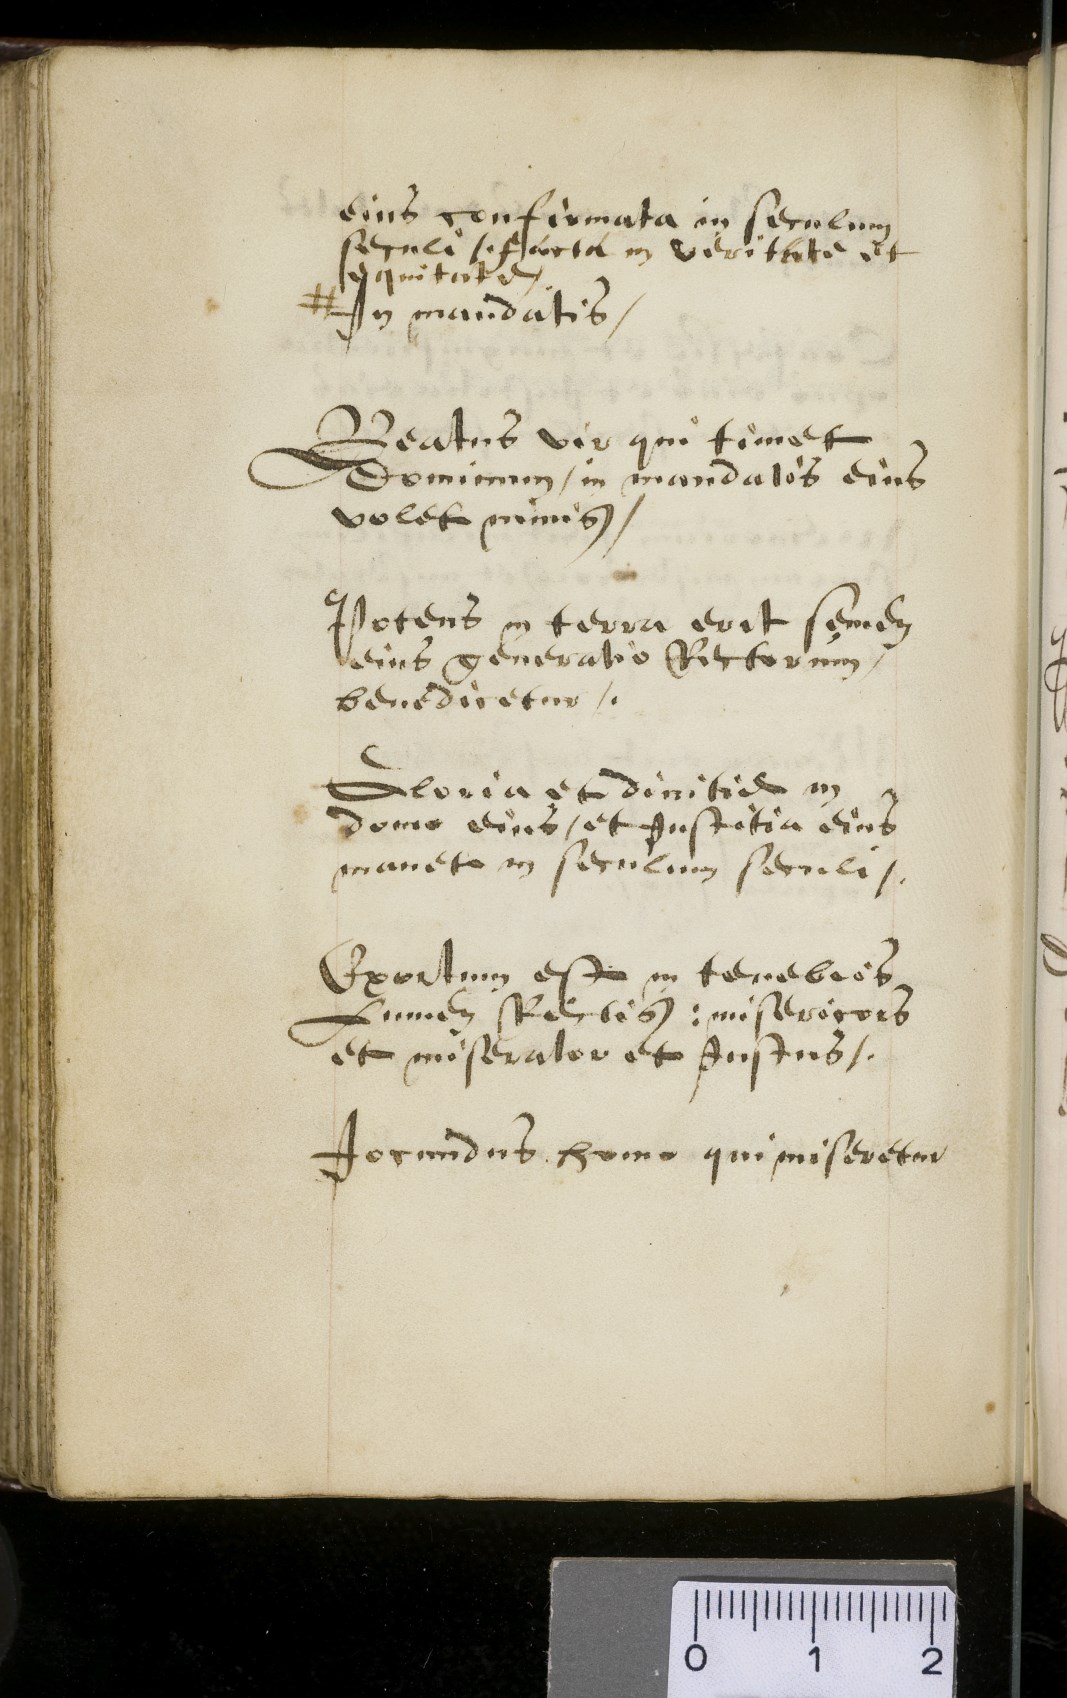 eius confirmata in seculum
seculi /. facta in veritate et
equitate /.
# In mandatis /
Beatus vir qui timet
Dominum / in mandatis eius
volet nimis /
Potens in terra erit semen
eius generatio Rectorum /
benedicetur /.
Gloria et divitie in
domo eius / et Justitia eius
manet in seculum seculi /.
Exortum est in tenebris
Lumen Rectis : misericors
et miserator et Justus /.
Jocundus homo qui miseretur
0 1 2